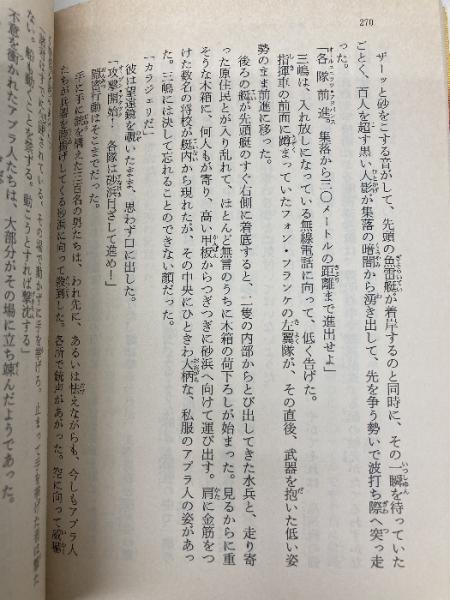 270
ザーッと砂をこする音がして、先頭の魚雷艇が着岸するのと同時に、その一瞬を待っていた
ごとく、百人を超す黒い人影が集落の暗闇から湧き出して、先を争う勢いで波打ち際へ突っ走
った。
「各隊前進。集落から三〇メートルの距離まで進出せよ」
三嶋は、入れ放しになっている無線電話に向って、低く告げた。
指揮車の前面に蹲まっていたフォン・フランケの左翼隊が、その直後、武器を抱いた低い姿
勢のまま前進に移った。
後ろの艇が先頭艇のすぐ右側に着底すると、二隻の内部からとび出してきた水兵と、走り寄
った原住民とが入り乱れて、ほとんど無言のうちに木箱の荷下ろしが始まった。見るからに重
そうな木箱に、何人もが寄り、高い甲板からつぎつぎに砂浜へ向けて運び出す。肩に金筋をつ
けた数名の将校が艇内から現れたが、その中央にひときわ大柄な、私服のアブラ人の姿があっ
た。三嶋には決して忘れることのできない顔だった。
「カラジェリだ」
彼は望遠鏡を覗いたまま、思わず口に出した。
「攻撃開始！　各隊は砂浜目ざして進め！」
隠密行動はそこまでだった。
手に手に銃を構えた三百名の男たちは、われ先に、あるいは怯えながらも、今しもアブラ人
たちが兵器を陸揚げしてくる砂浜に向って殺到した。各所で銃声があがった。空に向って
その場で動かずに手を挙げろ。止まって手を挙げた者は撃た
ない。船も動くことを禁ずる。動こうとすれば撃沈する」
不意を衝かれたアブラ人たちは、大部分がその場に立ち竦んだようであった。